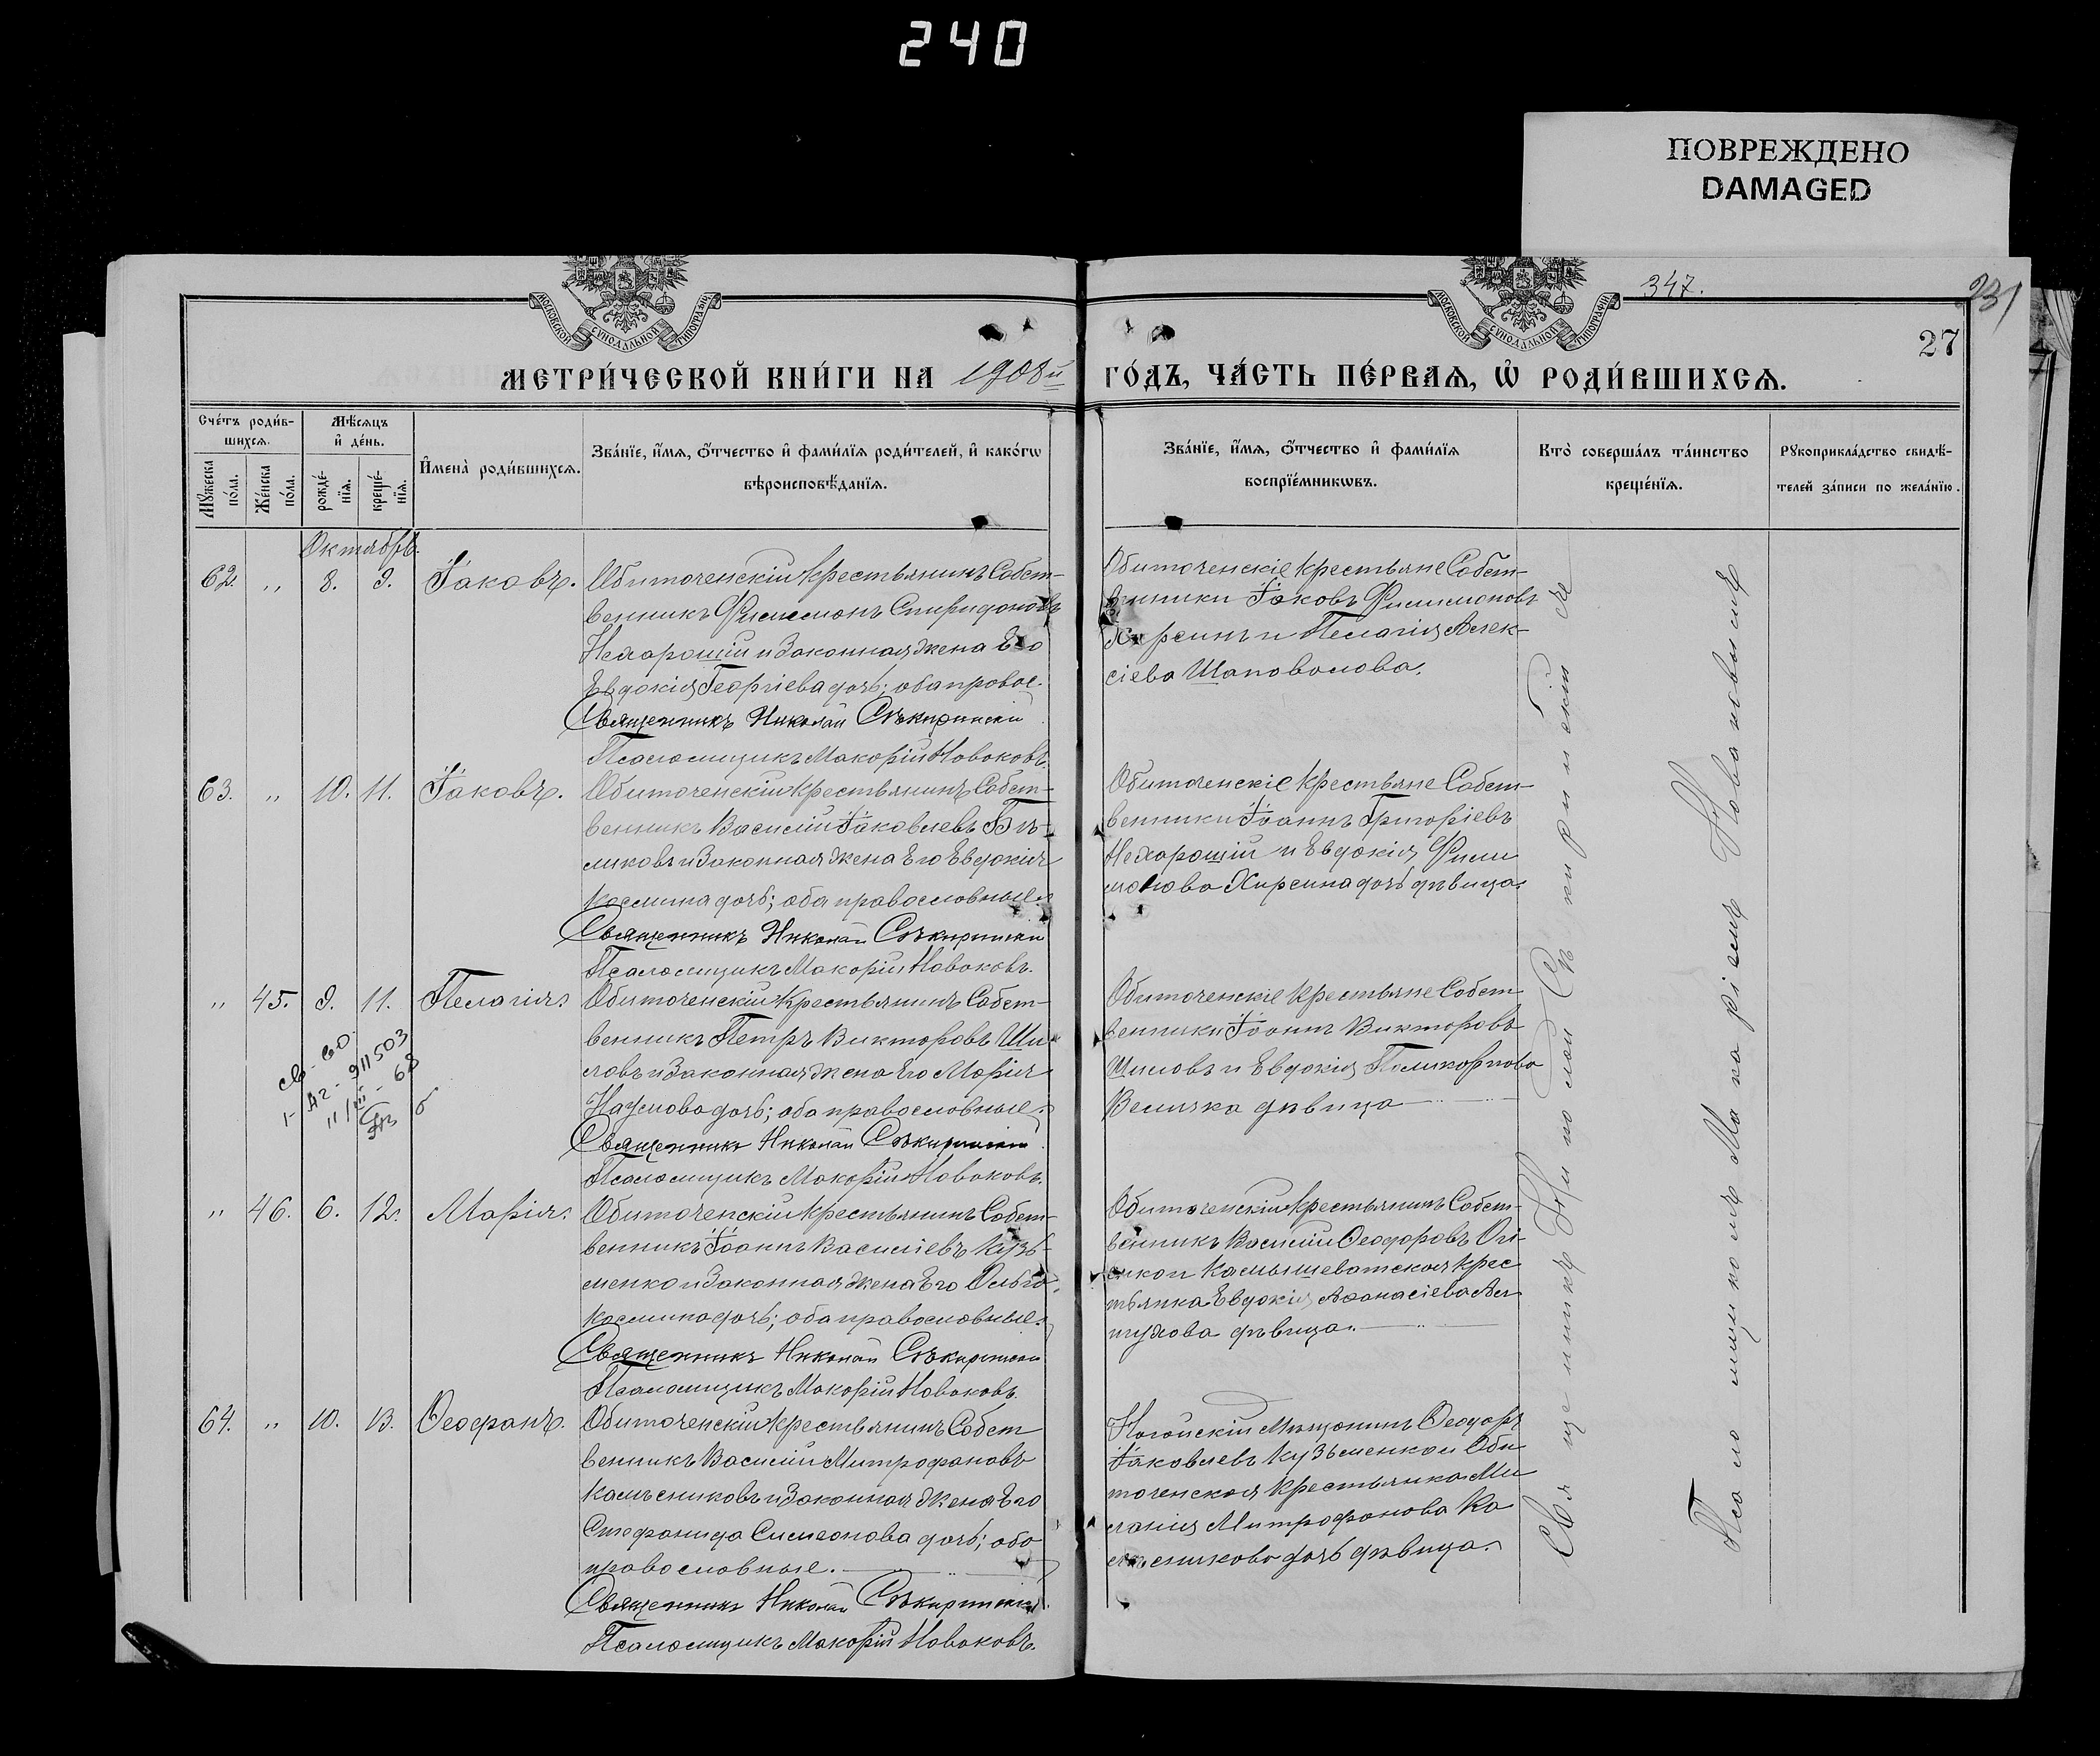 240
ПОВРЕЖДЕНО
DAMAGED
347.
231
27
МОСКОВСКОЙ СѴНОДАЛЬНОЙ ТИПОГРАФІИ
МОСКОВСКОЙ СѴНОДАЛЬНОЙ ТИПОГРАФІИ
МЕТРИ́ЧЕСКОЙ КНИ́ГИ НА 1908й ГО́ДЪ, ЧА́СТЬ ПЕ́РВАЯ, Ѽ РОДИ́ВШИХСЯ.
Сче́тъ роди́в-
шихся.
Мꙋжеска по́ла.
Же́нска по́ла.
Мѣ́сяцъ
и҆ де́нь.
рожде́-
нїя.
креще́-
нїя.
И҆мена̀ роди́вшихся.
Зва́нїе, и҆́мя, ѻ҆́тчество и҆ фами́лїя роди́телей, и҆ како́гѡ
вѣроисповѣ́данїя.
Зва́нїе, и҆́мя, ѻ҆́тчество и҆ фами́лїя
воспрїе́мникѡвъ.
Кто̀ соверша́лъ та́инство
креще́нїя.
Рꙋкоприкла́дство свидѣ́-
телей за́писи по жела́нїю.
Октябрь.
62. „ 8. 9. Іаковъ.
Обиточенскій крестьянинъ Собст-
венникъ Филимонъ Спиридоновъ
Нехорошій и Законная жена Его
Евдокія Георгіева дочь; оба правос.
Священникъ Николай Сѣкиринскій
Псаломщикъ Макарій Новаковъ.
Обиточенскіе крестьяне Собст-
венники Іаковъ Филимоновъ
Хирсинъ и Пелагія Алек-
сіева Шаповалова.
63. „ 10. 11. Іаковъ.
Обиточенскій крестьянинъ Собст-
венникъ Василій Іаковлевъ Бѣ-
ликовъ и Законная жена Его Евдокія
Космина дочь; оба православные.
Священникъ Николай Сѣкиринскій
Псаломщикъ Макарій Новаковъ.
Обиточенскіе крестьяне Собст-
венники Іоаннъ Григоріевъ
Нехорошій и Евдокія Фили
монова Хирсина дочь дѣвица.
„ 45. 9. 11. Пелагія.
Обиточенскій крестьянинъ Собст-
венникъ Петръ Викторовъ Ши
ловъ и Законная жена Его Марія
Наумова дочь; оба православные.
Священникъ Николай Сѣкиринскій
Псаломщикъ Макарій Новаковъ.
Обиточенскіе крестьяне Собст
венники Іоаннъ Викторовъ
Шиловъ и Евдокія Поликарпова
Величка дѣвица
св-во
911503
68
„ 46. 6. 12. Марія.
Обиточенскій крестьянинъ Собст-
венникъ Іоаннъ Василіевъ Кузь-
менко и Законная жена Его Ольга
Космина дочь; оба православные.
Священникъ Николай Сѣкиринскій
Псаломщикъ Макарій Новаковъ.
Обиточенскій крестьянинъ Собст-
венникъ Василій Ѳеодоровъ
и Камышеватская крес
тьянка Евдокія Аѳанасіева
дѣвица.
64. „ 10. 13. Ѳеофанъ.
Обиточенскій крестьянинъ Собст
венникъ Василій Митрофановъ
Калъсниковъ и Законная жена Его
Стефанида Симеонова дочь; оба
православные.
Священникъ Николай Сѣкиринскій.
Псаломщикъ Макарій Новаковъ.
Ногойскій мѣщанинъ Ѳеодоръ
Іаковлевъ Кузьменко и Оби
точенская крестьянка Ми
ланія Митрофанова Ка
лѣсникова дочь дѣвица.
Священникъ Николай Сѣкиринскій съ
Псаломщикомъ Макаріемъ Новаковымъ